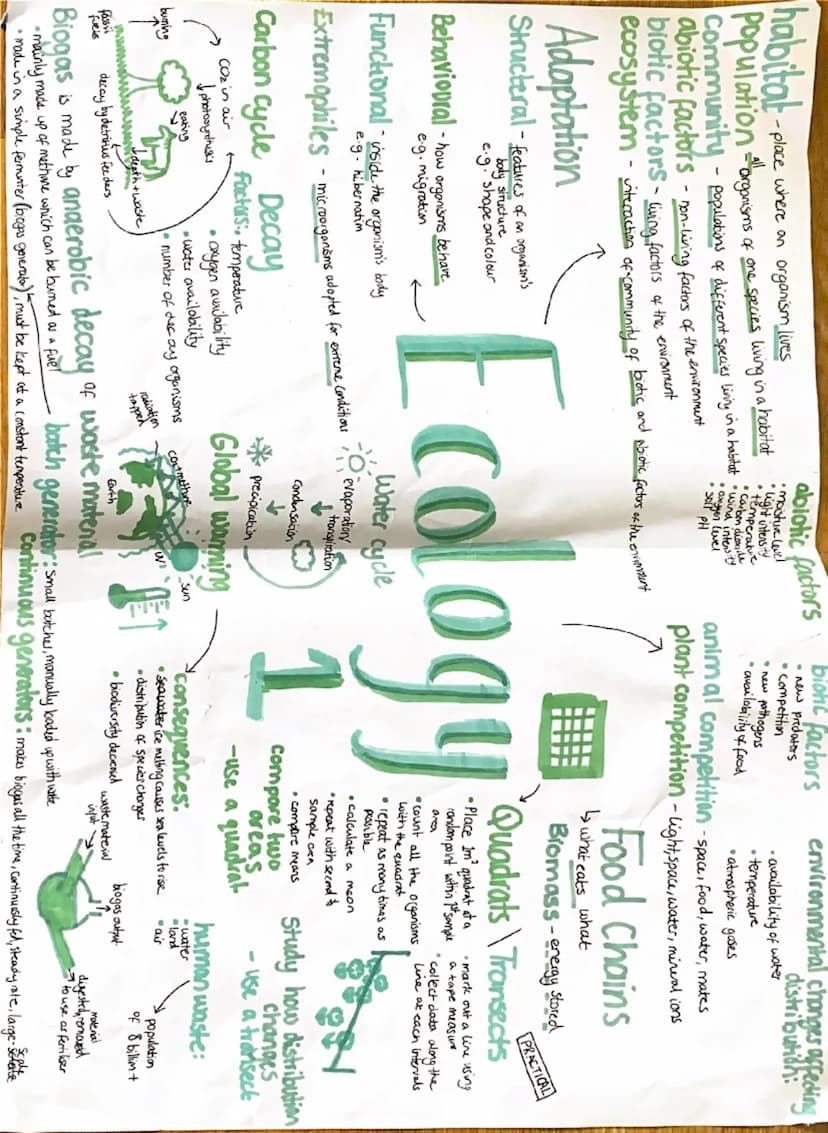 habitat - place where an organism lives
population = all organisms of one species living in a habitat
community - populations of different species living in a habitat
abiotic factors - non-living factors of the environment
biotic factors - living factors of the environment
ecosystem - interaction of community of biotic and abiotic factors of the environment
abiotic factors
• moisture level
• light intensity
• temperature
• carbon dioxide
• wind intensity
• oxygen level
• soil pH
biotic factors
• new predators
• competition
• new pathogens
• availability of food
environmental changes affecting
distribution:
• availability of water
• temperature
• atmospheric gases
Adaptation
Structural - features of an organism's
body structure
e.g. shape and colour
Behavioural - how organisms behave
e.g. migration
Functional - inside the organism's body
e.g. hibernation
Extremophiles - microorganisms adapted for extreme conditions
Ecology
1
animal competition - space, food, water, mates
plant competition - light, space, water, mineral ions
Food Chains
↳ what eats what
Biomass - energy stored
PRACTICAL
Quadrats | Transects
• Place 1m² quadrat at a
random point within 1st sample
area
• count all the organisms
within the quadrat
• repeat as many times as
possible
• calculate a mean
• repeat with second
sample area
• compare means
• mark out a line using
a tape measure
• collect data along the
line at each intervals
Compare two
areas
- use a quadrat
Study how distribution
changes
- use a transect
Water cycle
evaporation/
transpiration
condensation
precipitation
Carbon Cycle
CO2 in air
↓photosynthesis
burning
fossil
fuels
eating
death + waste
decay by detritus feeders
Decay
Factors:
• temperature
• oxygen availability
• water availability
• number of decay organisms
Global warming
radiation
trapped
Earth
UV
sun
Consequences:
• ice melting causes sea levels to rise
• distribution of species changes
• biodiversity decreased
human waste:
• water
• land
• air
population
of 8 billion +
Biogas is made by anaerobic decay of waste material
• mainly made up of methane which can be burned as a fuel
• made in a simple fermenter (biogas generator), must be kept at a constant temperature
batch generator: small batches, manually loaded up with waste
Continuous generators: makes biogas all the time, continuously fed, steady rate, large-scale
waste material
input
biogas output
digested material
removed
to use as fertiliser